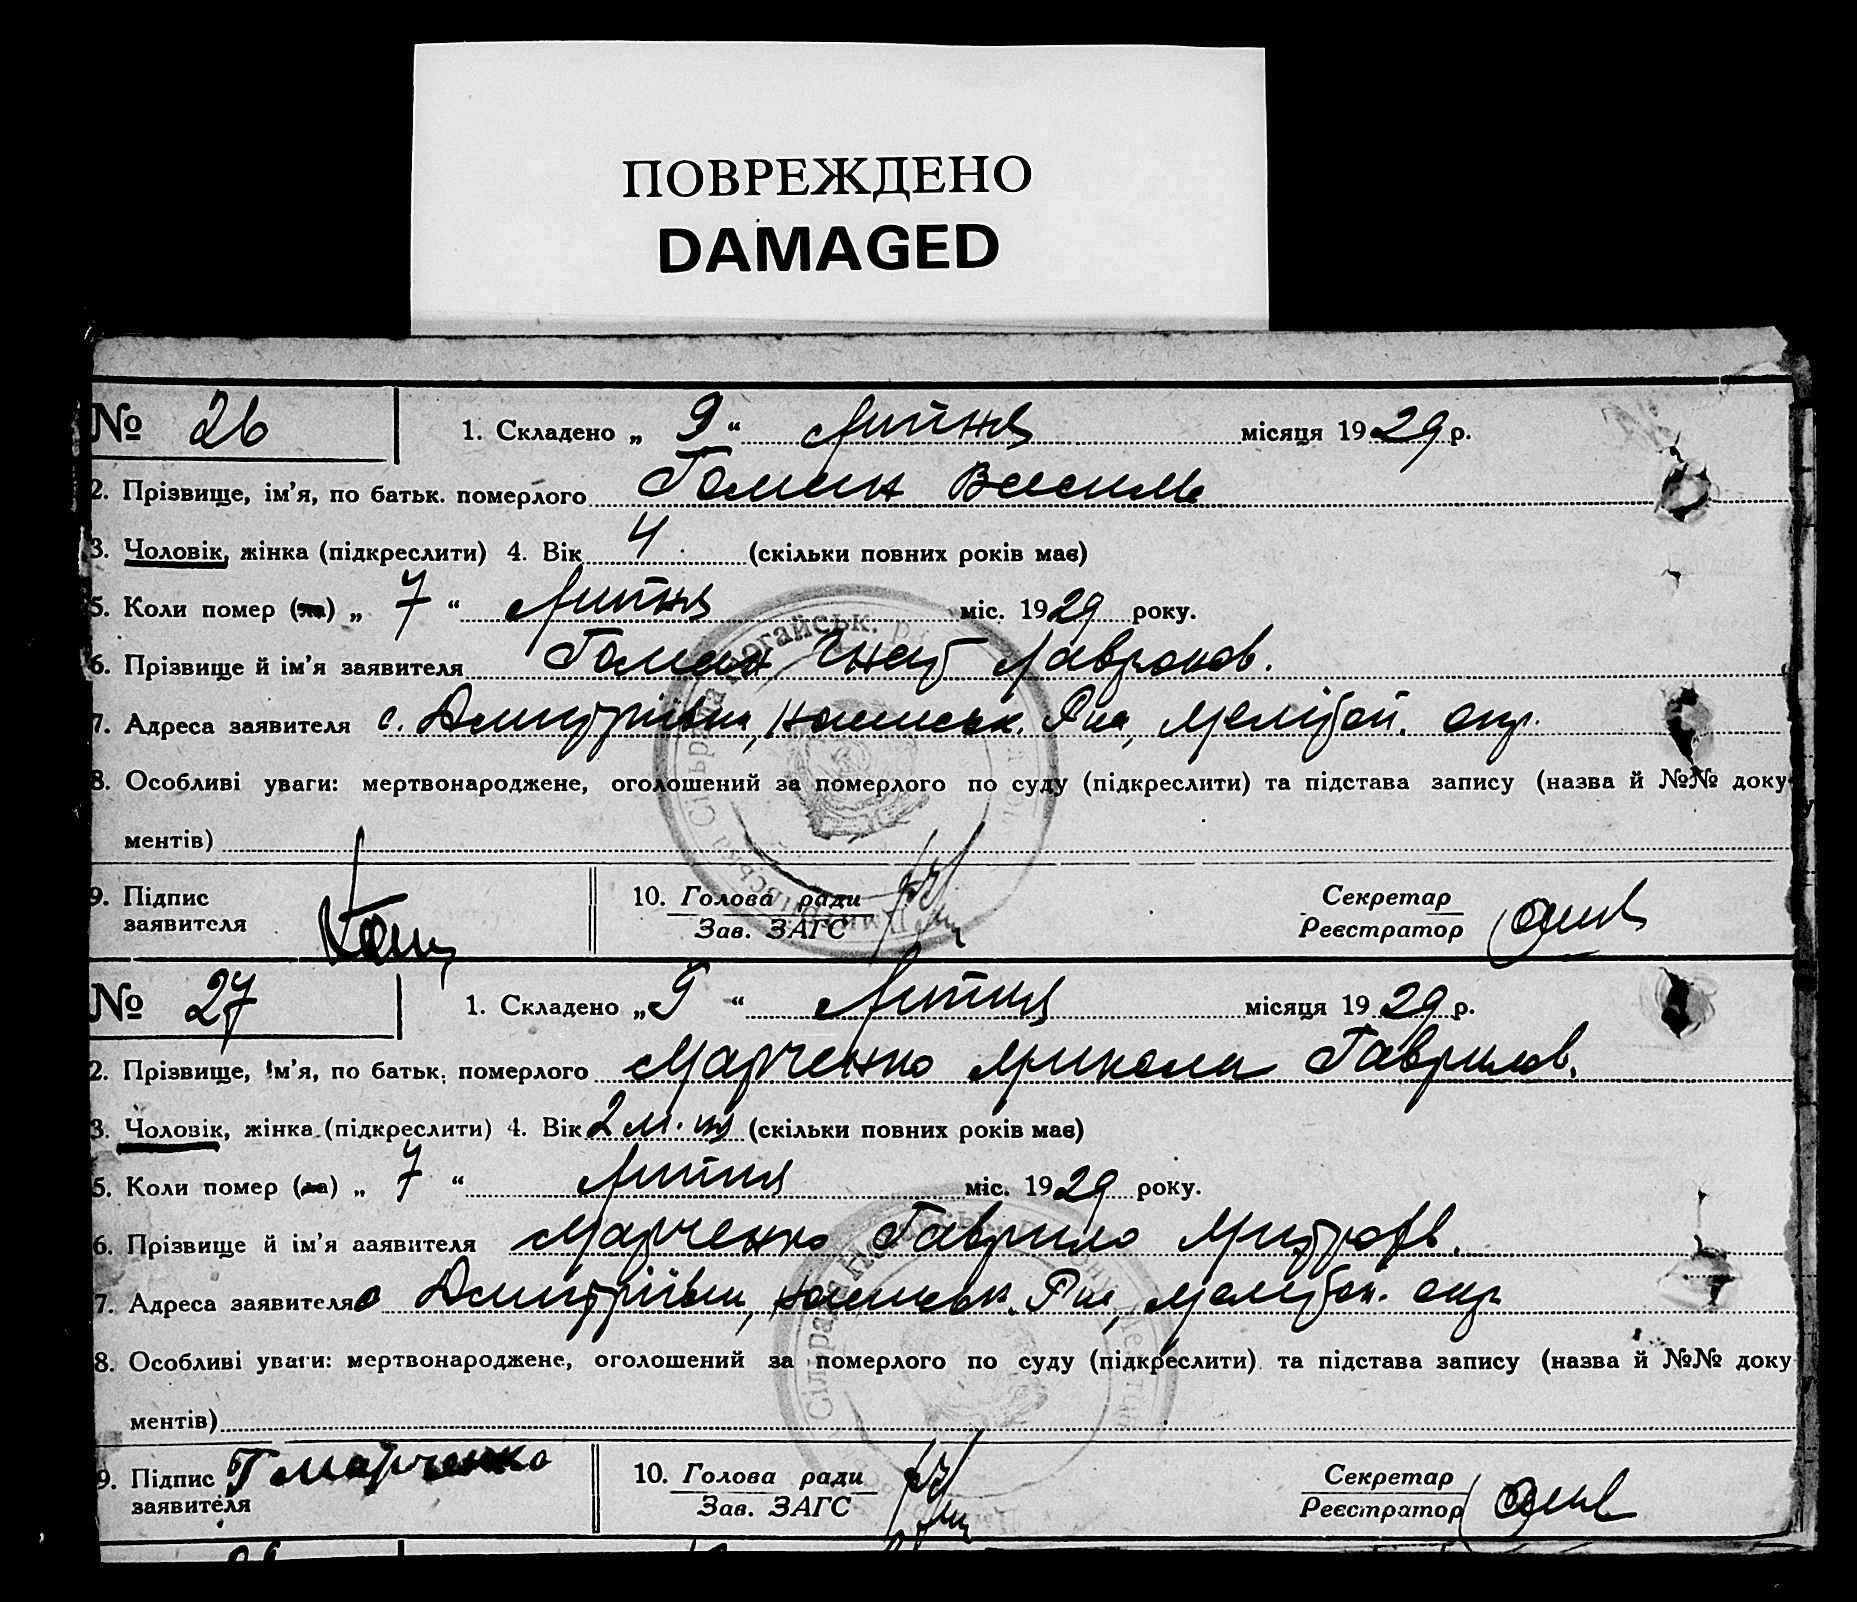 ПОВРЕЖДЕНО
DAMAGED
№ 26 1. Складено „ 9 “ Липня місяця 1929 р.
2. Прізвище, ім’я, по батьк. померлого Гоман Василь
3. Чоловік, жінка (підкреслити) 4. Вік 4 (скільки повних років має)
5. Коли помер (ла) „ 7 “ Липня міс. 1929 року.
6. Прізвище й ім’я заявителя Гоман Гнат
7. Адреса заявителя с. Дмитрівки, Р-на, Меліт. окр.
8. Особливі уваги: мертвонароджене, оголошений за померлого по суду (підкреслити) та підстава запису (назва й №№ доку
ментів)
9. Підпис
заявителя
10. Голова ради
Зав. ЗАГС
Секретар
Реєстратор
№ 27 1. Складено „ 9 “ Липня місяця 1929 р.
2. Прізвище, ім’я, по батьк. померлого Марченко Микола Гаврилов.
3. Чоловік, жінка (підкреслити) 4. Вік 2 м. (скільки повних років має)
5. Коли помер (ла) „ 7 “ Липня міс. 1929 року.
6. Прізвище й ім’я заявителя Марченко Гаврило
7. Адреса заявителя с Дмитрівки, Р-на, окр
8. Особливі уваги: мертвонароджене, оголошений за померлого по суду (підкреслити) та підстава запису (назва й №№ доку
ментів)
9. Підпис Г Марченко
заявителя
10. Голова ради
Зав. ЗАГС
Секретар
Реєстратор